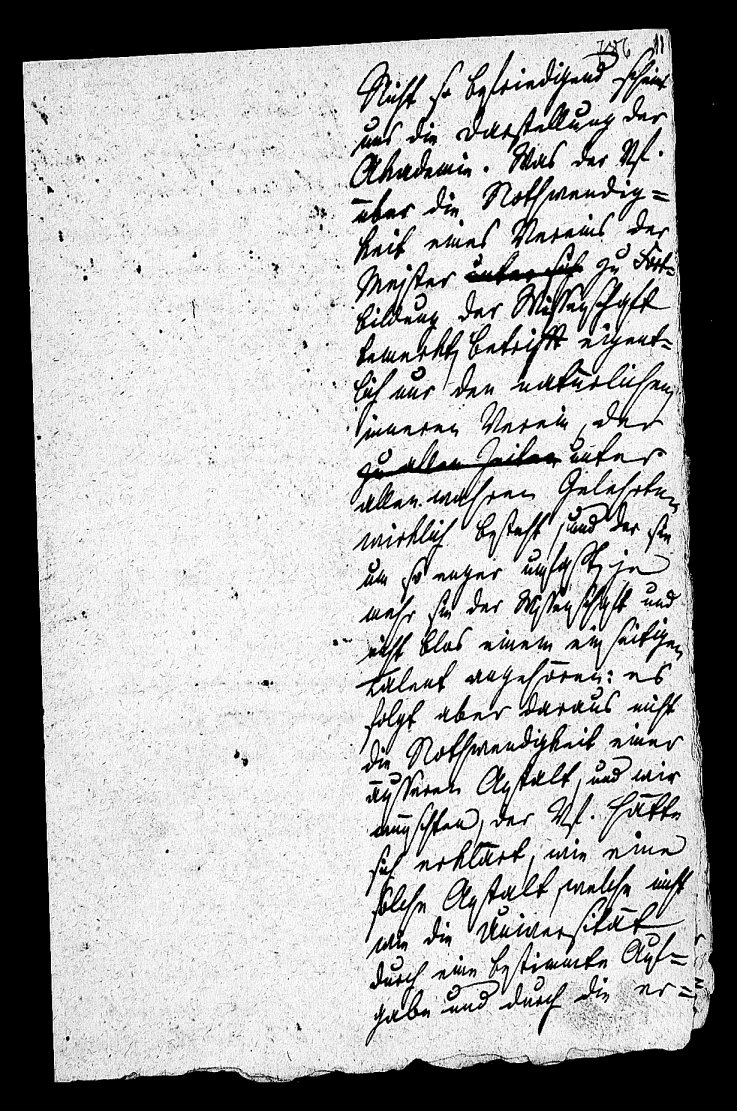 11
Nicht so befriedigend scheint
uns die Darstellung der
Akademie. Was der Vf.
über die Nothwendig=
keit eines Vereins der
Meister unter sich zu Fort=
bildung der Wissenschaft
bemerkt, betrifft eigent=
lich nur den natürlichen,
inneren Verein, der
zu allen Zeiten unter
allen wahren Gelehrten
wirklich besteht, und der sie
um so enger umfaßt, je
mehr sie der Wissenschaft und
nicht blos einem einseitigen
Talent angehören: es
folgt aber daraus nicht
die Nothwendigkeit einer
äusseren Anstalt, und wir
wünschten, der Vf. hätte
sich erklärt, wie eine
solche Anstalt, welche nicht
wie die Universität
durch eine bestimmte Auf=
gabe und durch die er=